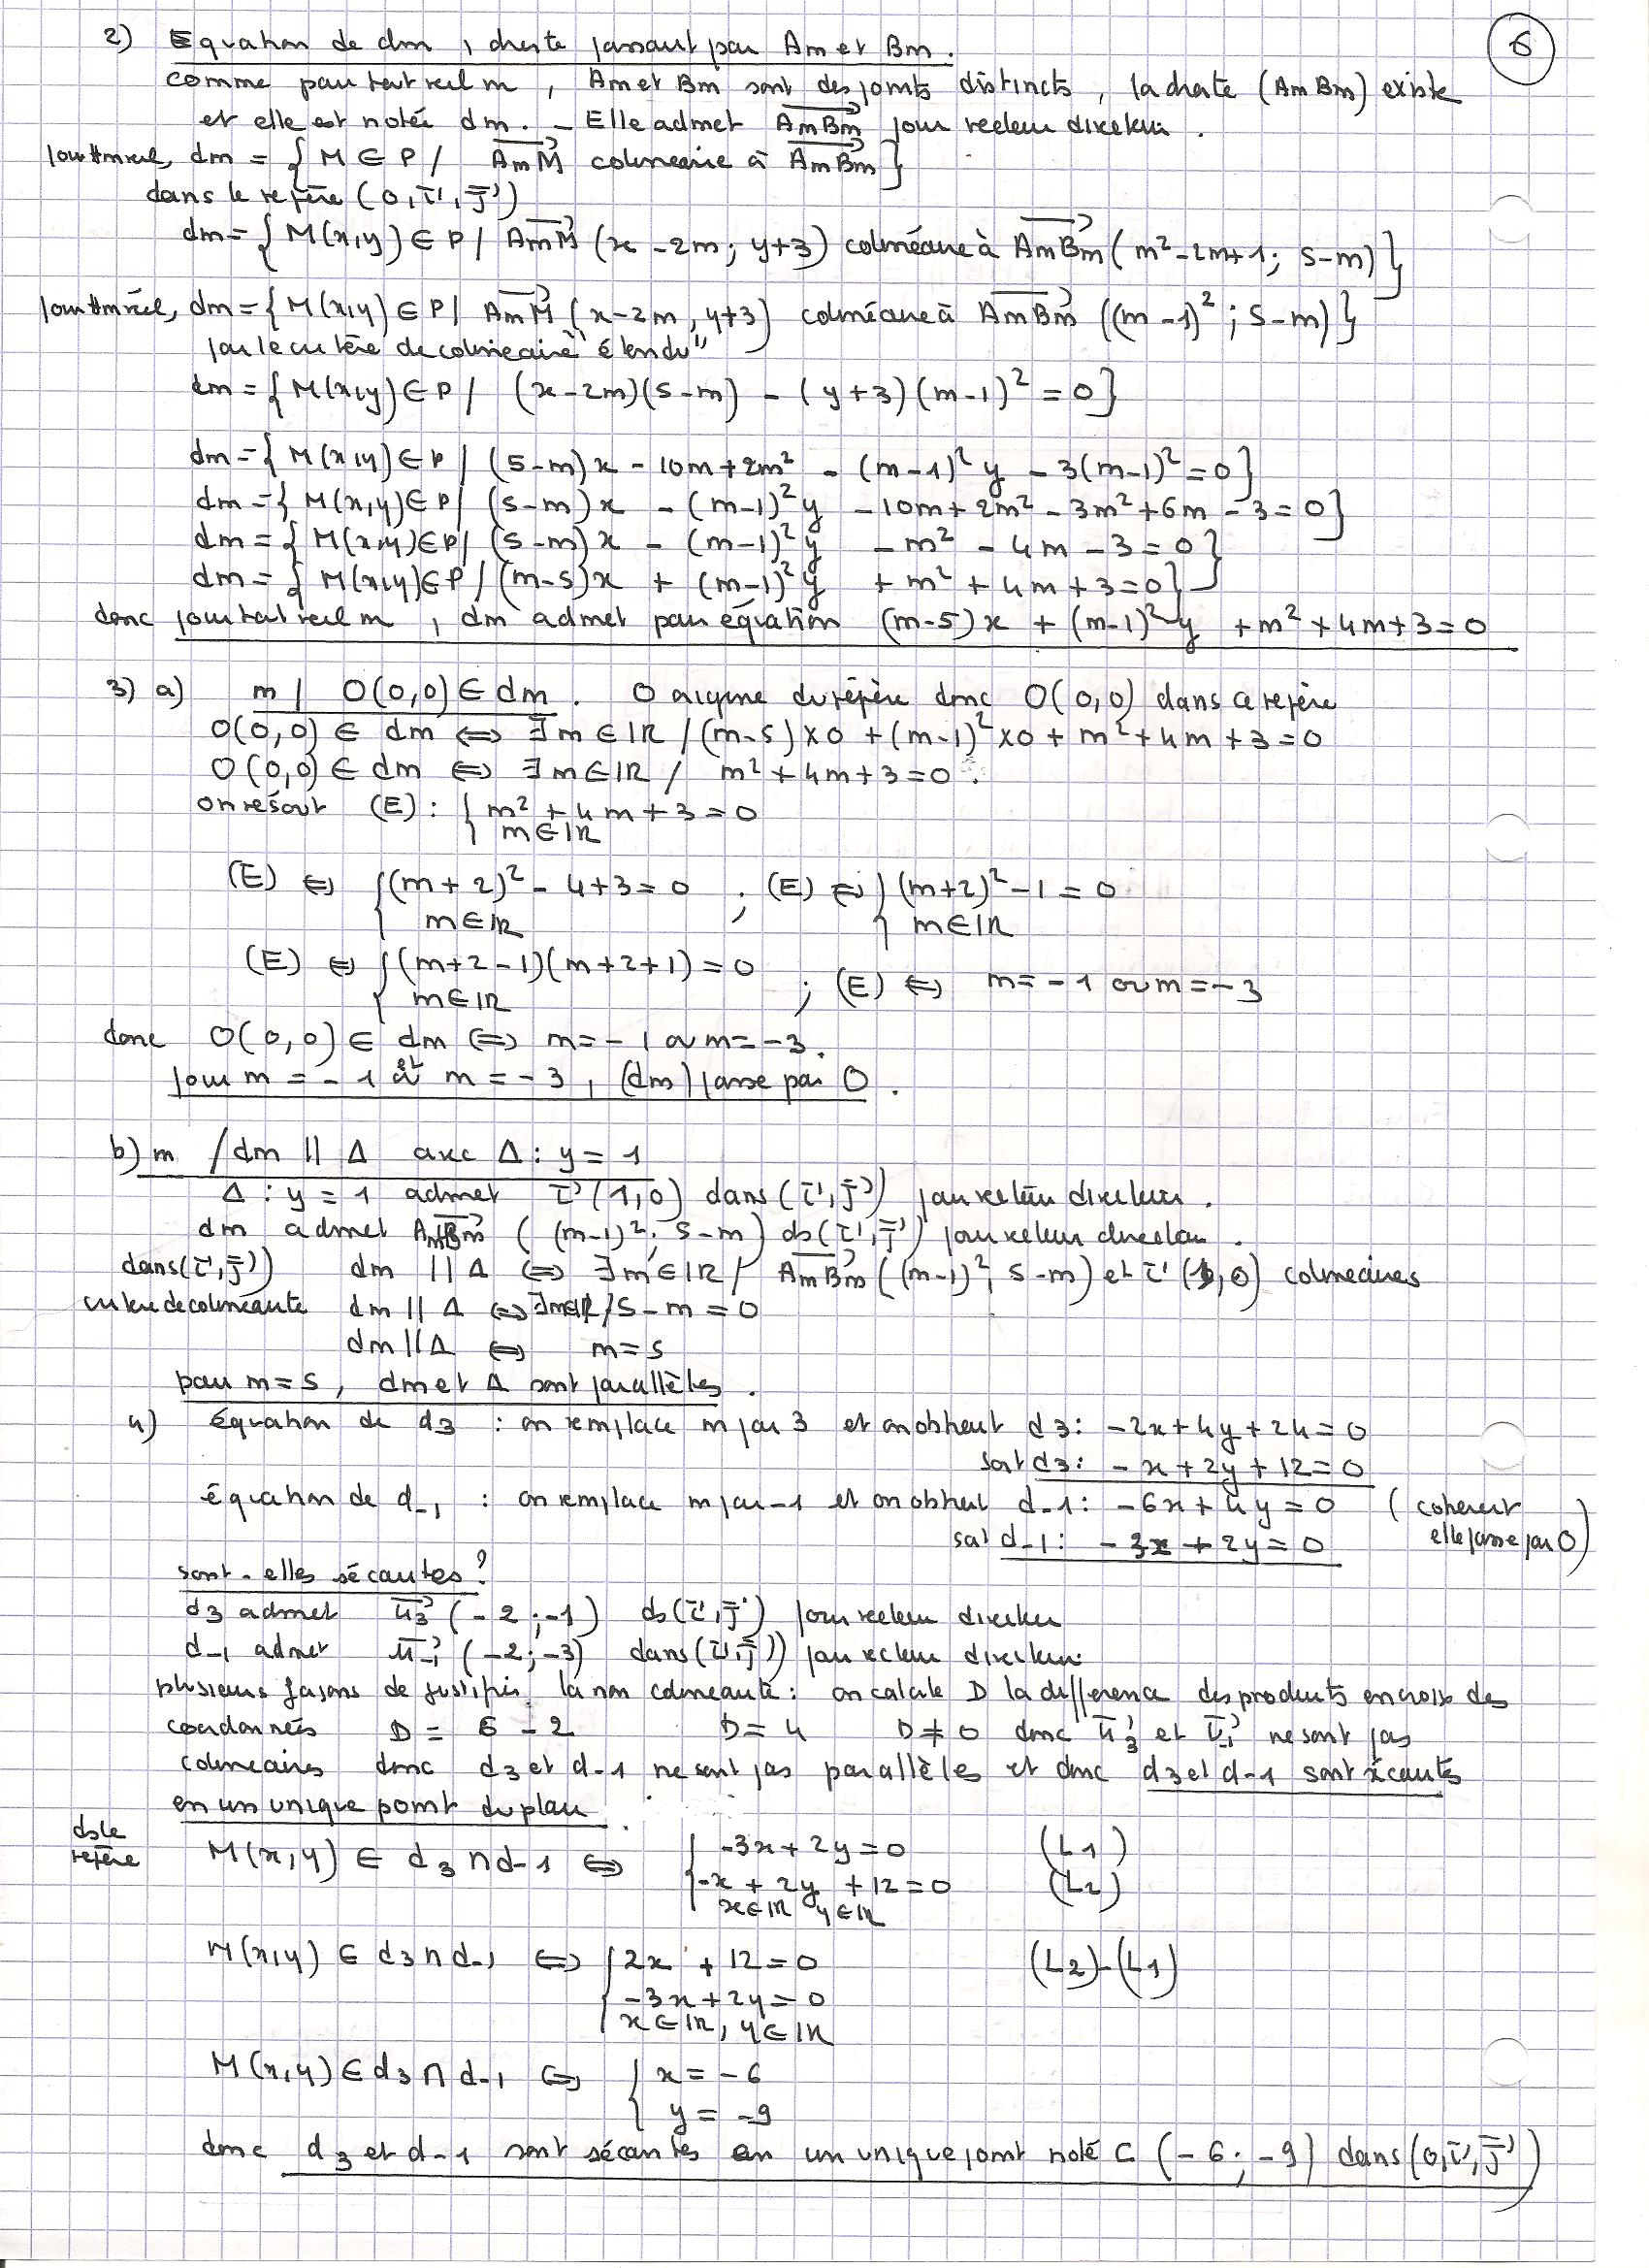 6
2) Equation de dm, droite passant par Am et Bm.
comme pour tout réel m, Am et Bm sont des points distincts, la droite (AmBm) existe
et elle est notée dm. - Elle admet AmBm pour vecteur directeur.
pour tt m réel, dm = { M ∈ P / AmM colinéaire à AmBm }
dans le repère (O, i, j)
dm = { M(x,y) ∈ P / AmM (x-2m; y+3) colinéaire à AmBm (m²-2m+1; 5-m) }
pour tt m réel, dm = { M(x,y) ∈ P / AmM (x-2m, y+3) colinéaire à AmBm ((m-1)²; 5-m) }
par le critère de colinéaire "étendu"
dm = { M(x,y) ∈ P / (x-2m)(5-m) - (y+3)(m-1)² = 0 }
dm = { M(x,y) ∈ P / (5-m)x - 10m + 2m² - (m-1)²y - 3(m-1)² = 0 }
dm = { M(x,y) ∈ P / (5-m)x - (m-1)²y - 10m + 2m² - 3m² + 6m - 3 = 0 }
dm = { M(x,y) ∈ P / (5-m)x - (m-1)²y - m² - 4m - 3 = 0 }
dm = { M(x,y) ∈ P / (m-5)x + (m-1)²y + m² + 4m + 3 = 0 }
donc pour tout réel m, dm admet pour équation (m-5)x + (m-1)²y + m² + 4m + 3 = 0
3) a) m / O(0,0) ∈ dm. O origine du repère donc O(0,0) dans ce repère
O(0,0) ∈ dm ⟺ ∃ m ∈ IR / (m-5)×0 + (m-1)²×0 + m² + 4m + 3 = 0
O(0,0) ∈ dm ⟺ ∃ m ∈ IR / m² + 4m + 3 = 0.
on résout (E) : { m² + 4m + 3 = 0
m ∈ IR
(E) ⟺ { (m+2)² - 4 + 3 = 0 ; (E) ⟺ { (m+2)² - 1 = 0
m ∈ IR m ∈ IR
(E) ⟺ { (m+2-1)(m+2+1) = 0 ; (E) ⟺ m = -1 ou m = -3
m ∈ IR
donc O(0,0) ∈ dm ⟺ m = -1 ou m = -3.
pour m = -1 et m = -3, (dm) passe par O.
b) m / dm // Δ avec Δ : y = 1
Δ : y = 1 admet i (1,0) dans (i, j) pour vecteur directeur.
dm admet AmBm ((m-1)²; 5-m) ds (i, j) pour vecteur directeur.
dans (i, j) dm // Δ ⟺ ∃ m ∈ IR / AmBm ((m-1)²; 5-m) et i (1,0) colinéaires
critère de colinéarité dm // Δ ⟺ ∃ m ∈ IR / 5-m = 0
dm // Δ ⟺ m = 5
pour m = 5, dm et Δ sont parallèles.
4) équation de d3 : on remplace m par 3 et on obtient d3 : -2x + 4y + 24 = 0
soit d3 : -x + 2y + 12 = 0
équation de d-1 : on remplace m par -1 et on obtient d-1 : -6x + 4y = 0 (cohérent
elle passe par O)
soit d-1 : -3x + 2y = 0
sont-elles sécantes ?
d3 admet u3 (-2; -1) ds (i, j) pour vecteur directeur
d-1 admet u-1 (-2; -3) dans (i, j) pour vecteur directeur.
plusieurs façons de justifier la non colinéarité : on calcule D la différence des produits en croix des
coordonnées D = 6 - 2 D = 4 D ≠ 0 donc u3 et u-1 ne sont pas
colinéaires donc d3 et d-1 ne sont pas parallèles et donc d3 et d-1 sont sécantes
en un unique point du plan.
ds le
repère M(x,y) ∈ d3 ∩ d-1 ⟺ { -3x + 2y = 0 (L1)
-x + 2y + 12 = 0 (L2)
x ∈ IR y ∈ IR
M(x,y) ∈ d3 ∩ d-1 ⟺ { 2x + 12 = 0 (L2)-(L1)
-3x + 2y = 0
x ∈ IR, y ∈ IR
M(x,y) ∈ d3 ∩ d-1 ⟺ { x = -6
y = -9
donc d3 et d-1 sont sécantes en un unique point noté C (-6; -9) dans (O, i, j)